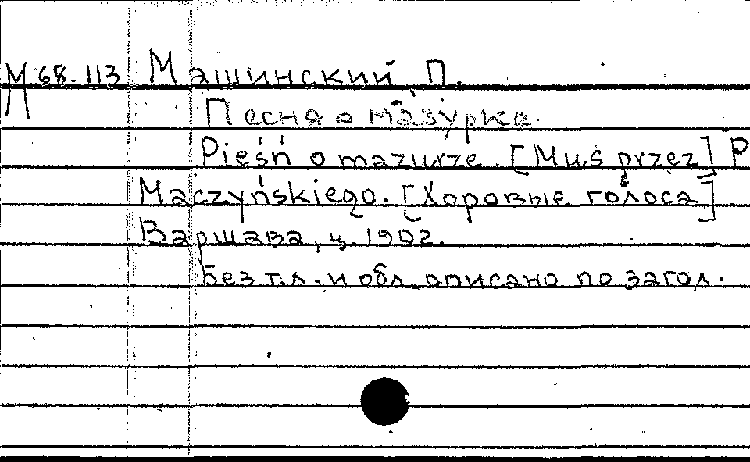 М 68-113 Машинский, П.
Песня о мазурке.
Pieśń o mazurze. [Muś przez] P
Maczyńskiego. [Хоровые голоса]
Варшава, ц. 1902.
Без т.л. и обл. описано по загол.